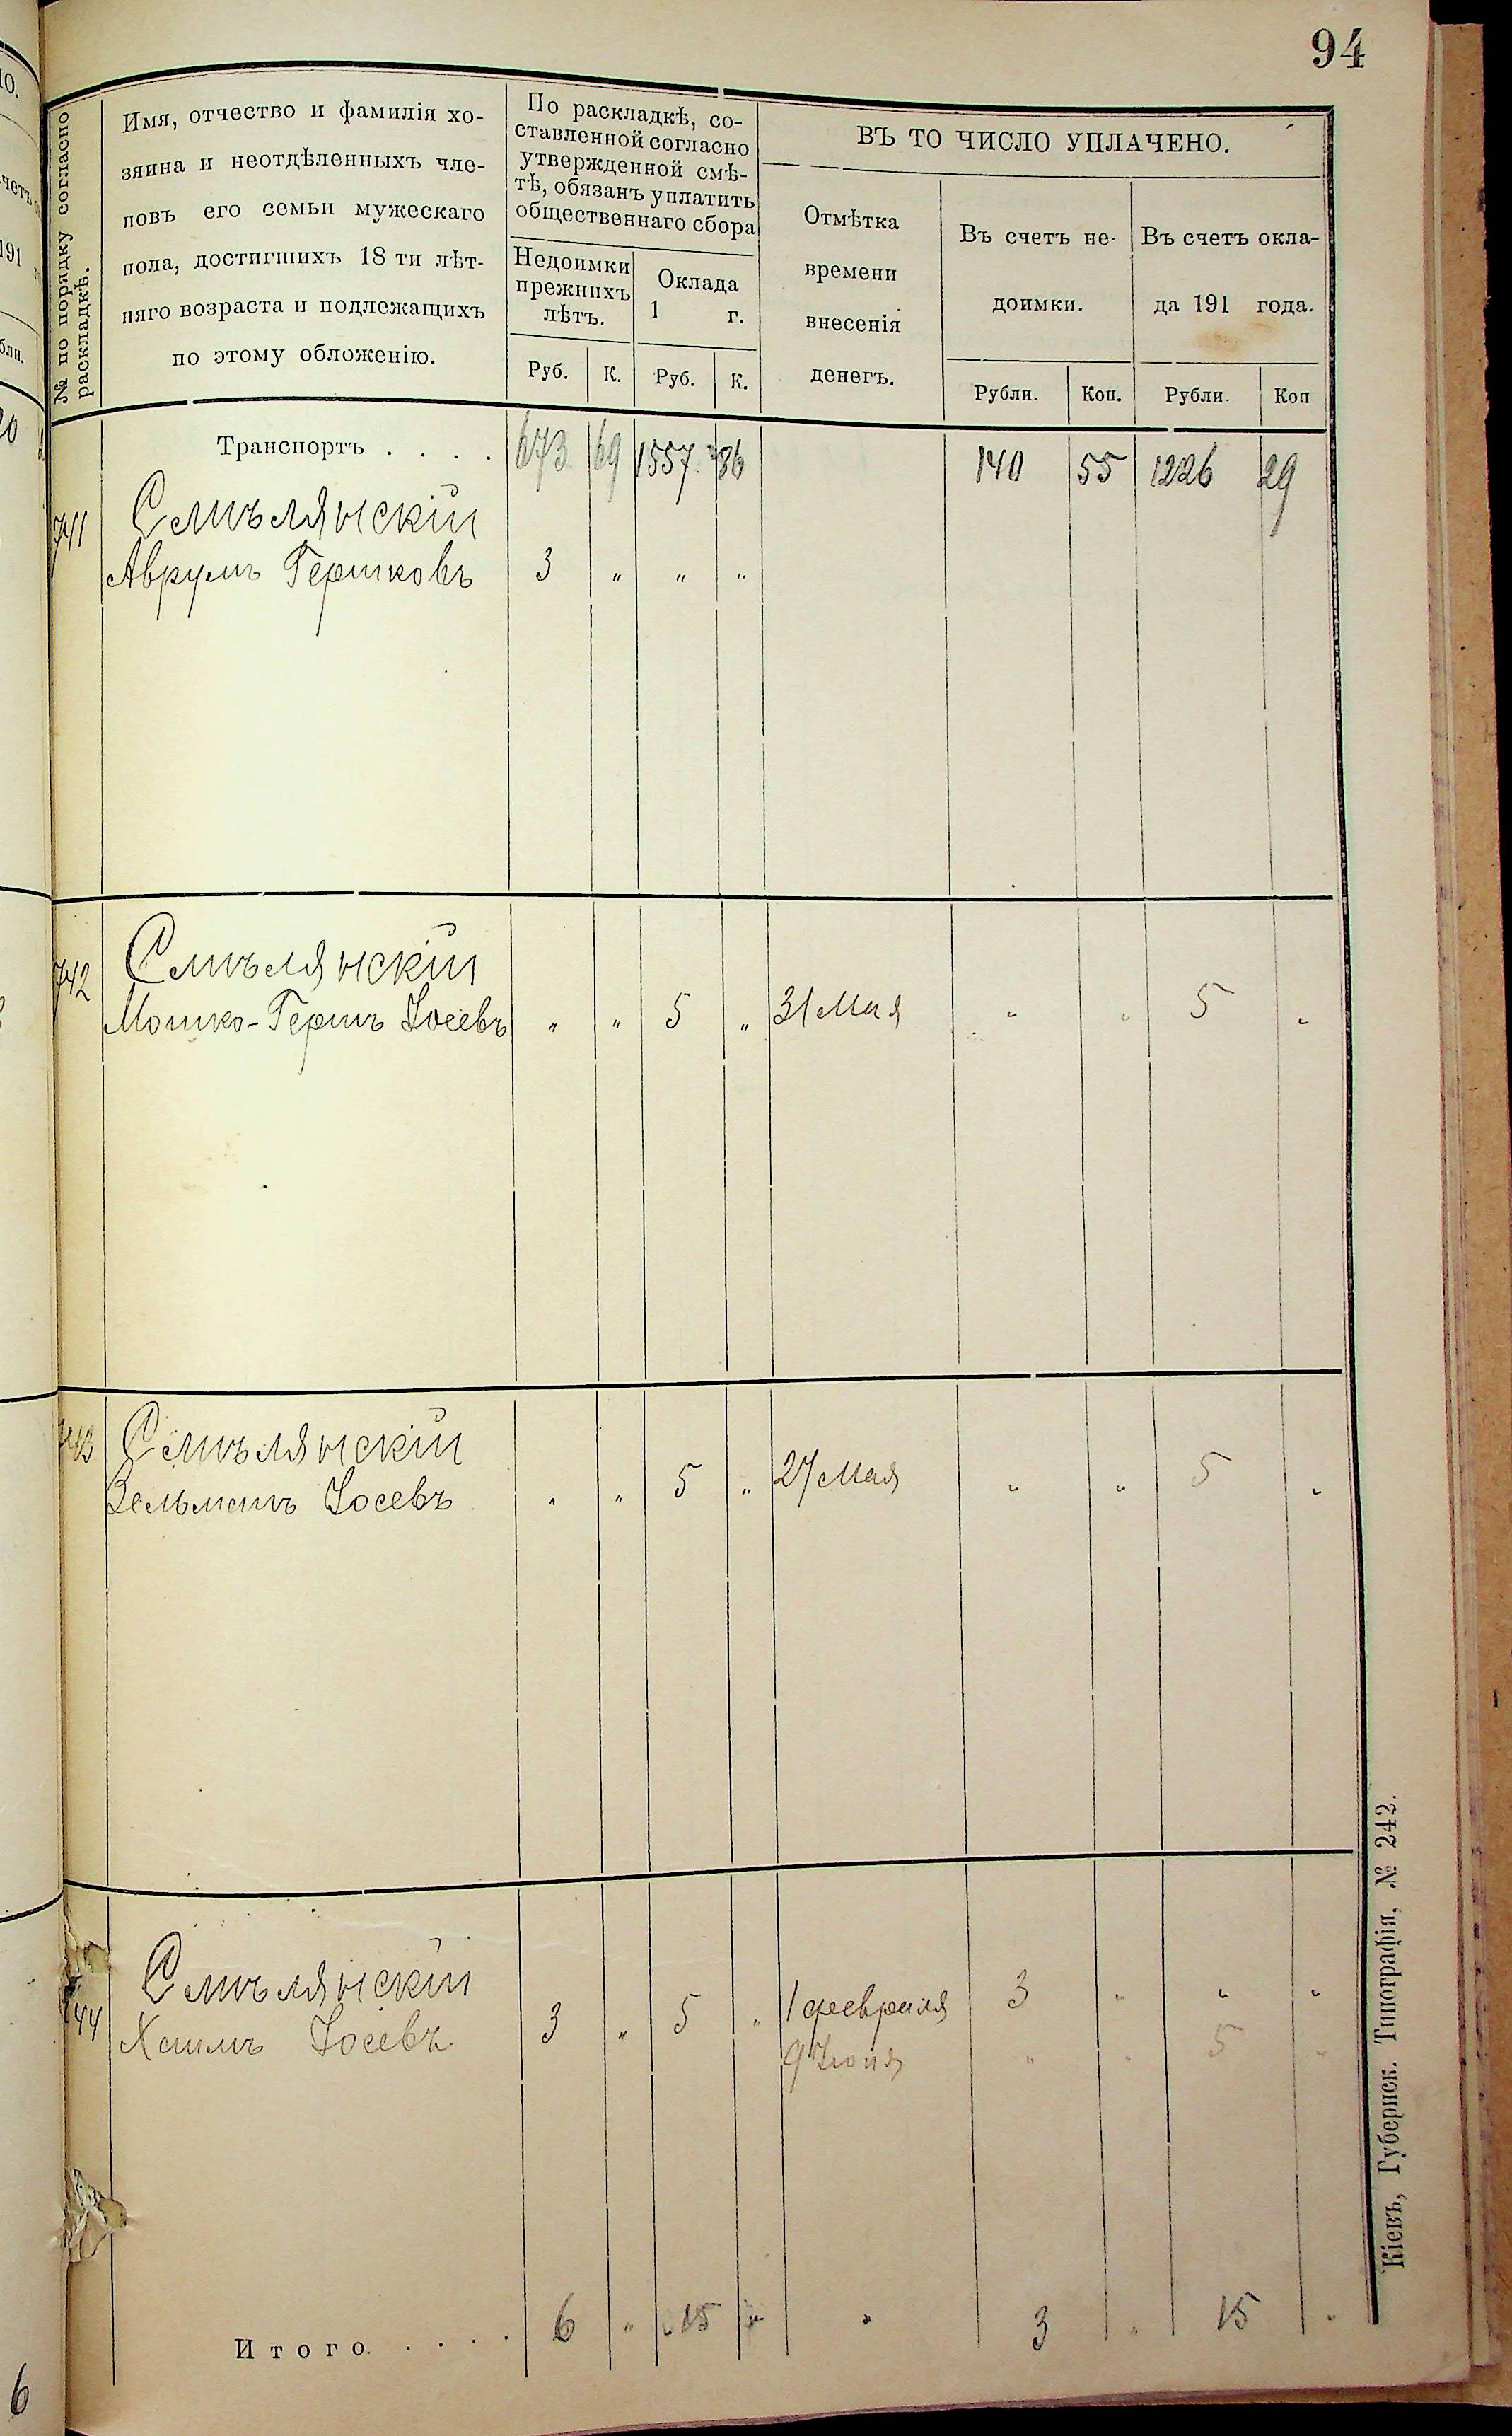 94
№ по порядку согласно
раскладкѣ.
Имя, отчество и фамилія хо-
зяина и неотдѣленныхъ чле-
новъ его семьи мужескаго
пола, достигшихъ 18 ти лѣт-
няго возраста и подлежащихъ
по этому обложенію.
По раскладкѣ, со-
ставленной согласно
утвержденной смѣ-
тѣ, обязанъ уплатить
общественнаго сбора
Недоимки
прежнихъ
лѣтъ.
Оклада
1 г.
Руб. К. Руб. К.
ВЪ ТО ЧИСЛО УПЛАЧЕНО.
Отмѣтка
времени
внесенія
денегъ.
Въ счетъ не-
доимки.
Въ счетъ окла-
да 191 года.
Рубли. Коп. Рубли. Коп
Транспортъ . . . . 673 69 1557 36 140 55 1226 29
741 Смѣлянскій
Аврумъ Гершковъ 3 " " "
742 Смѣлянскій
Мошко-Гершъ Іосевъ " " 5 " 31 Мая " " 5 "
743 Смѣлянскій
Зельманъ Іосевъ " " 5 " 27 Мая " " 5 "
744 Смѣлянскій
Хаимъ Іосевъ 3 " 5 " 1 февраля 3 " " "
9 Іюня " " 5 "
Итого. . . . . 6 " 15 " " 3 " 15 "
Кіевъ, Губернск. Типографія, № 242.